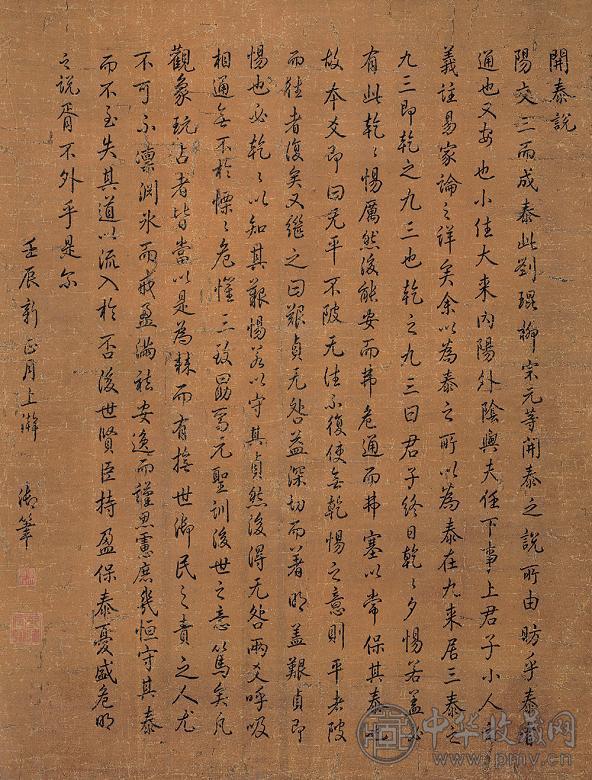 開泰說
陽交三而成泰此劉琨柳宗元等開泰之說所由昉乎泰者
通也又安也小往大來內陽外陰與夫任下事上君子小人
義註易家論之詳矣余以為泰之所以為泰在九來居三泰之
九三即乾之九三也乾之九三曰君子終日乾〻夕惕若蓋
有此乾〻惕厲然後能安而弗危通而弗塞以常保其泰
故本爻即曰无平不陂无往不復使無乾惕之意則平者陂
而往者復矣又繼之曰艱貞无咎益深切而著明蓋艱貞即
惕也必乾〻以知其艱惕若以守其貞然後得无咎兩爻呼吸
相通無不於慄〻危懼三致勗焉元聖訓後世之意篤矣凡
觀象玩占者皆當以是為棘而有撫世御民之責之人尤
不可不凜淵冰而戒盈滿祛安逸而謹思慮庶幾恒守其泰
而不至失其道以流入於否後世賢臣持盈保泰憂盛危明
之說胥不外乎是爾
壬辰新正月上澣 御筆
中华收藏网
www.pmv.cn